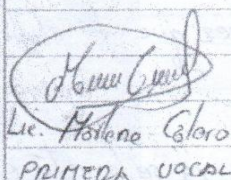 Lic. Marlene Calero
PRIMERA VOCAL